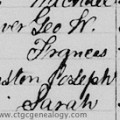 Michael
ver Geo K.
Frances
ston Joseph
Sarah
www.ctgcgenealogy.com